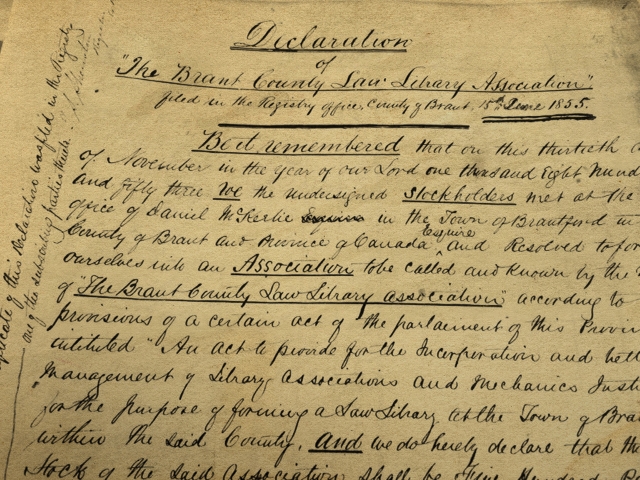 Declaration
of
"The Brant County Law Library Association"
filed in the Registry office, County of Brant, 15th June 1855.
Be it remembered that on this thirtieth
of November in the year of our Lord one thousand Eight Hund
and fifty three We the undersigned Stockholders met at the
office of Daniel McKerlie in the Town of Brantford in
County of Brant and Province of Canada Esquire and Resolved to for
ourselves into an Association to be called and known by the
of "The Brant County Law Library association" according to
provisions of a certain act of the parlaement of this Provin
intituled "An act to provide for the Incorporation and bett
Management of Library Associations and Mechanics Insti
for the purpose of forming a Law Library at the Town of Bra
within the said County, And we do hereby declare that the
Stock of the said Association shall be Five Hundred
plicate of this Declaration was filed in the Registry
one of the subscribing parties thereto